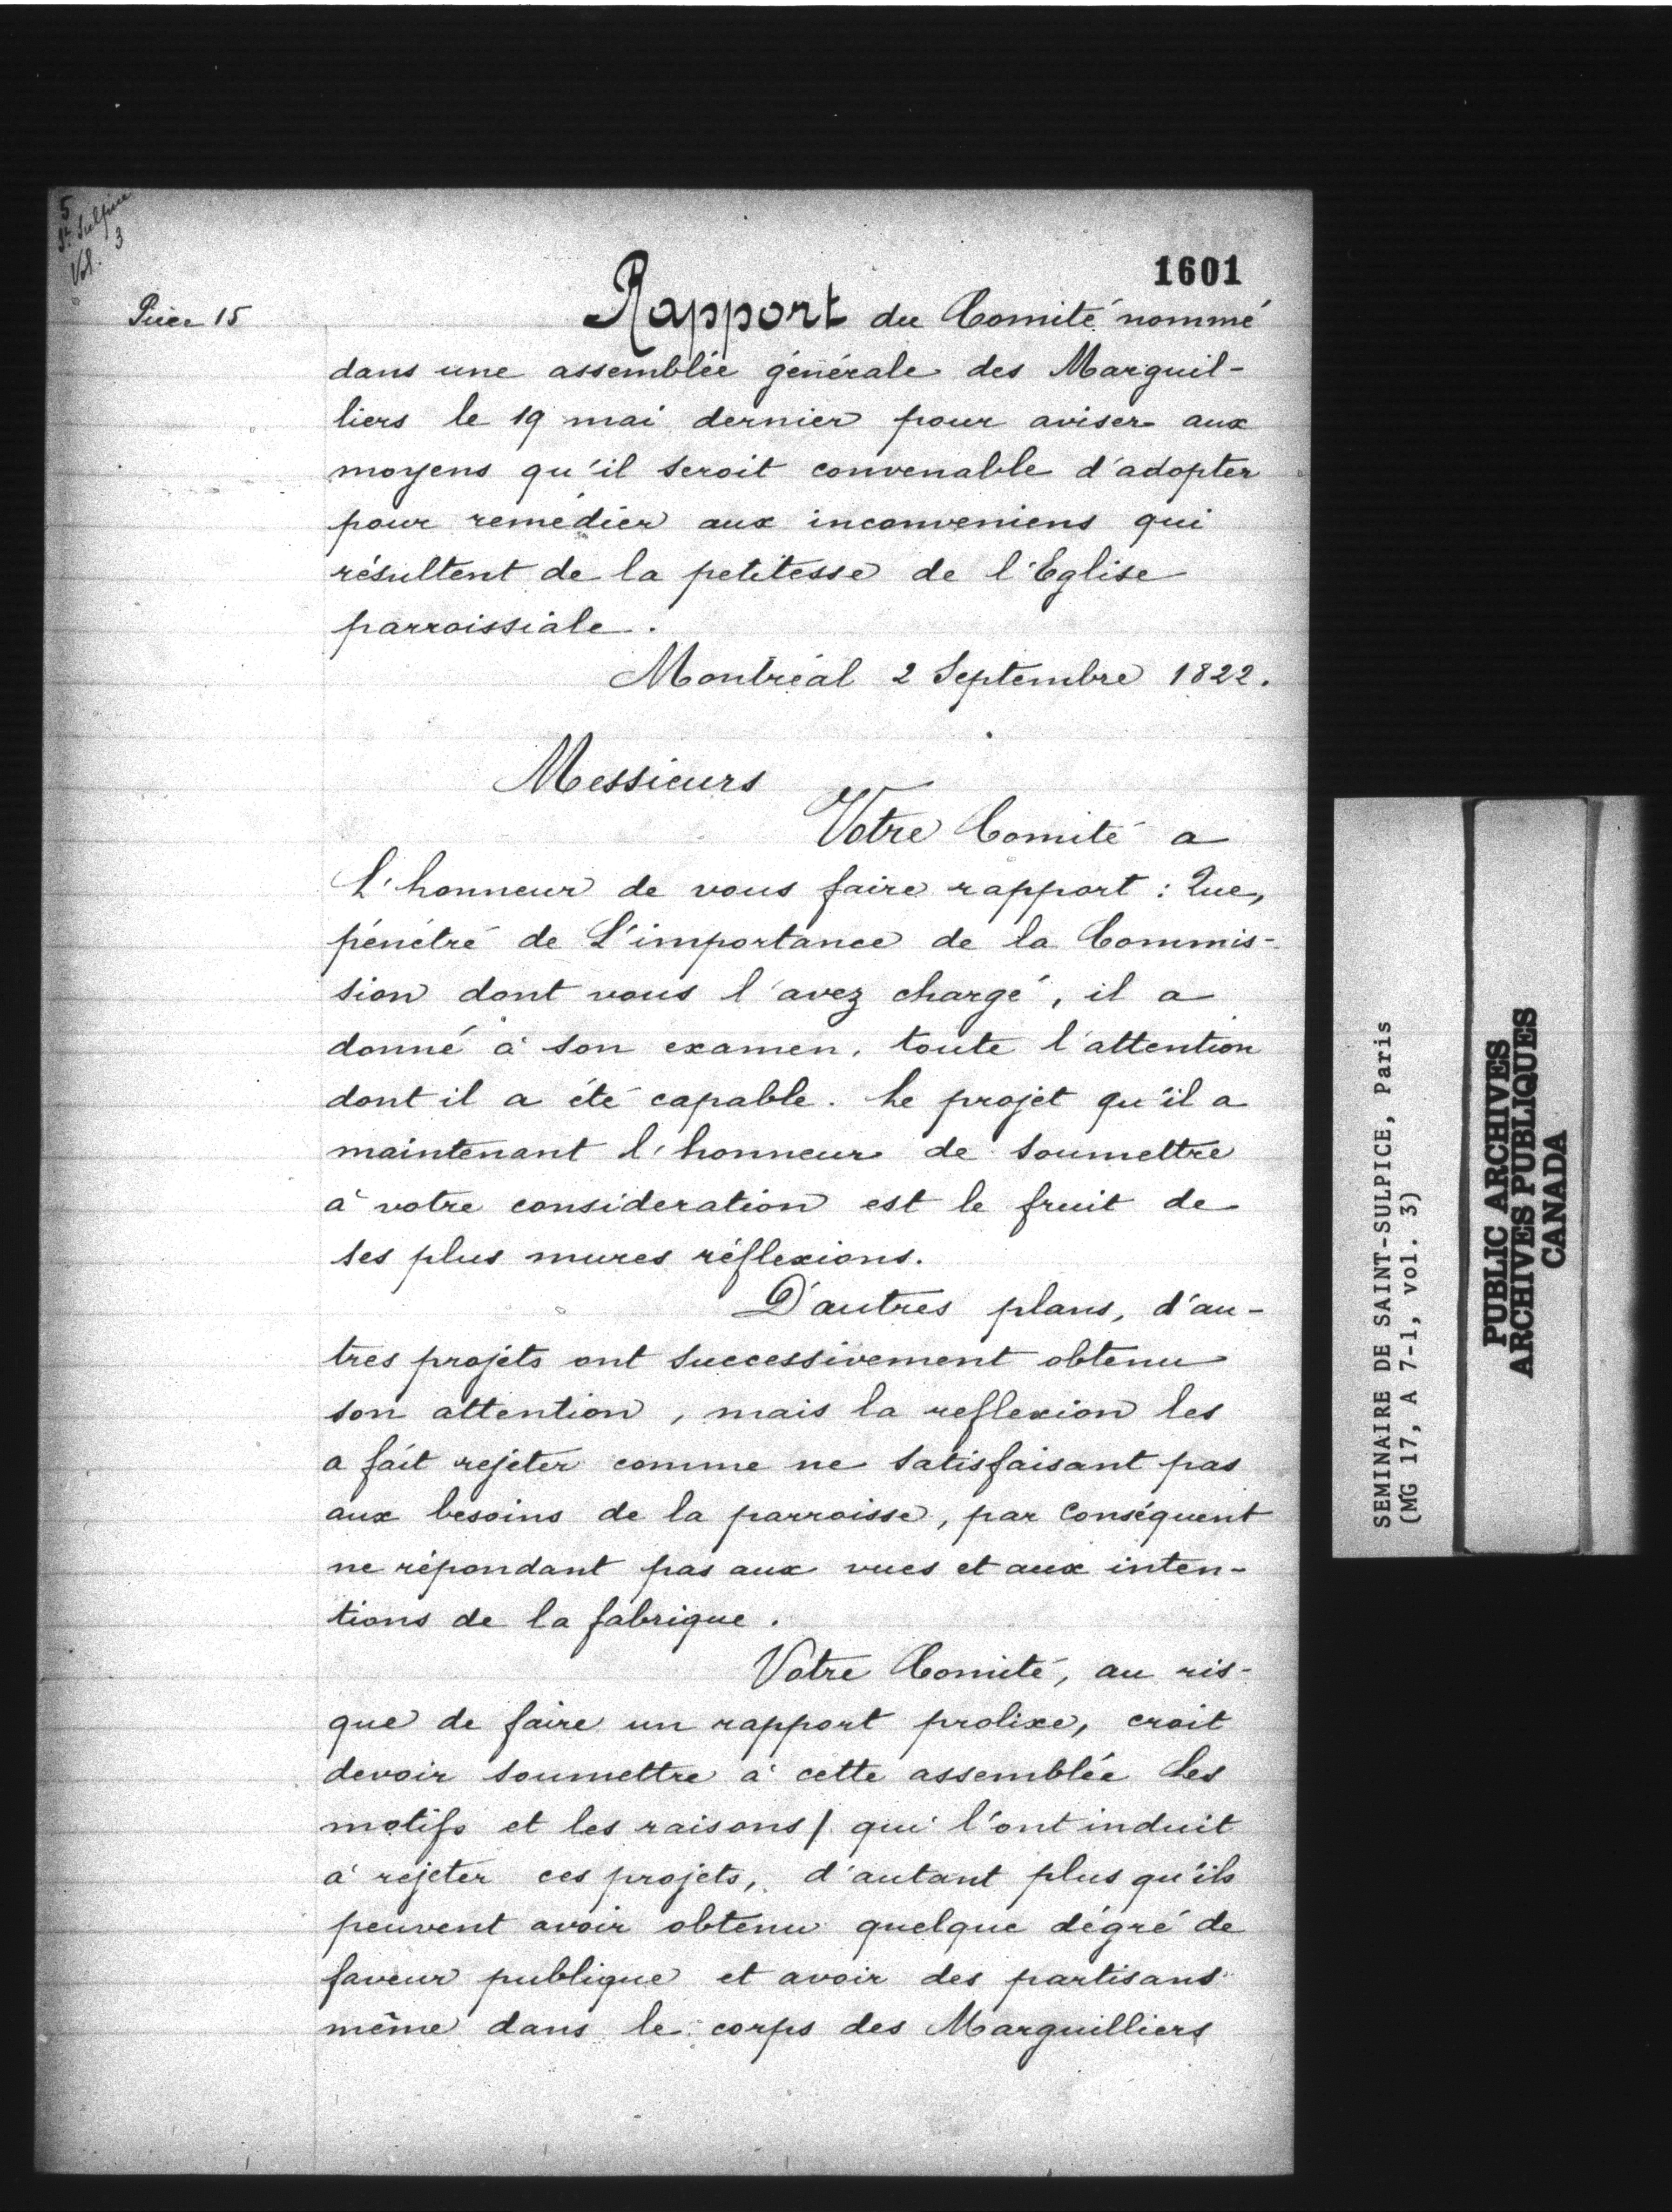 5
St. Sulpice
Vol. 3
1601
Pièce 15
Rapport du Comité nommé
dans une assemblée générale des Marguil-
liers le 19 mai dernier pour aviser aux
moyens qu'il seroit convenable d'adopter
pour remédier aux inconveniens qui
résultent de la petitesse de l'Eglise
parroissiale.
Montréal 2 Septembre 1822.
Messieurs
Votre Comité a
L'honneur de vous faire rapport : Que,
pénétré de L'importance de la Commis-
sion dont vous l'avez chargé, il a
donné à son examen, toute l'attention
dont il a été capable. Le projet qu'il a
maintenant l'honneur de soumettre
à votre consideration est le fruit de
ses plus mures réflexions.
D'autres plans, d'au-
tres projets ont successivement obtenu
son attention, mais la reflexion les
a fait rejeter comme ne satisfaisant pas
aux besoins de la parroisse, par conséquent
ne répondant pas aux vues et aux inten-
tions de la fabrique.
Votre Comité, au ris-
que de faire un rapport prolixe, croit
devoir soumettre à cette assemblée Les
motifs et les raisons/ qui l'ont induit
à rejeter ces projets, d'autant plus qu'ils
peuvent avoir obtenu quelque dégré de
faveur publique et avoir des partisans
même dans le corps des Marguilliers
SEMINAIRE DE SAINT-SULPICE, Paris
(MG 17, A 7-1, vol. 3)
PUBLIC ARCHIVES
ARCHIVES PUBLIQUES
CANADA